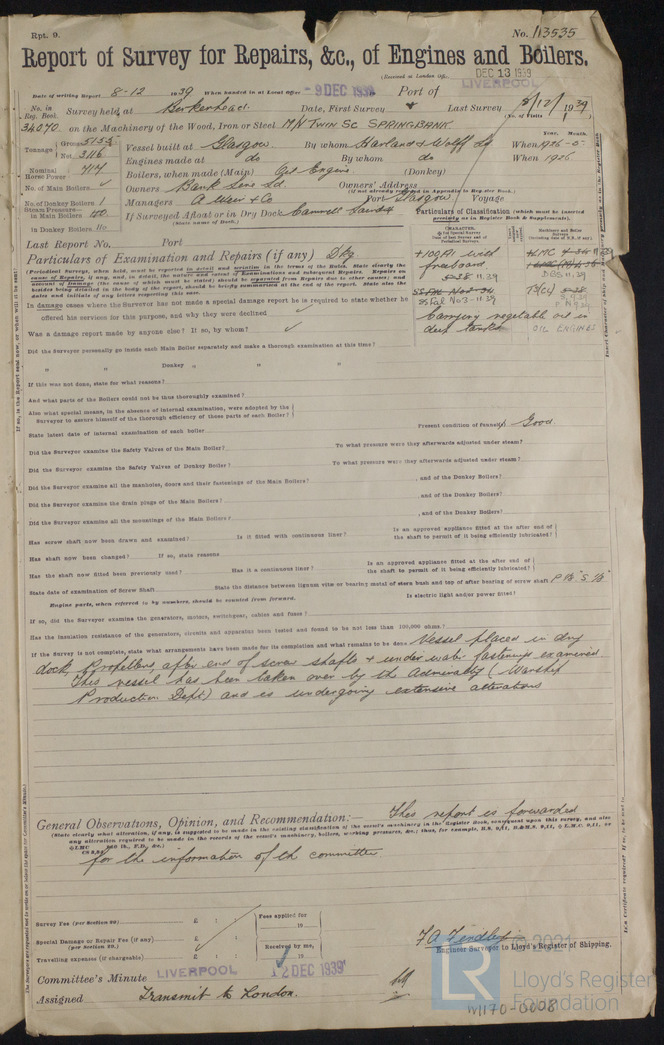 Rpt. 9.
No. 113535
Report of Survey for Repairs, &c., of Engines and Boilers.
(Received at London Office
DEC 13 1939
LIVERPOOL
Date of writing Report 8-12 1939 When handed in at Local Office - 9 DEC 1939 Port of
No. in Reg. Book. Survey held at Birkenhead. Date, First Survey Last Survey 8/12/1939
(No. of Visits
34070 on the Machinery of the Wood, Iron or Steel M/V TWIN SC SPRINGBANK
Tonnage Gross 5155
Net 3116
Vessel built at Glasgow By whom Harland & Wolff Ld When 1926-5
Year. Month.
Engines made at do By whom do When 1926
Nominal Horse Power 717 Boilers, when made (Main) Oil Engine (Donkey)
No. of Main Boilers Owners Bank Line Ld. Owners' Address
(if not already recorded in Appendix to Register Book.)
No. of Donkey Boilers 1 Managers A Weir & Co Port Glasgow Voyage
Steam Pressure in Main Boilers
in Donkey Boilers 110
If Surveyed Afloat or in Dry Dock
(State name of Dock.)
Particulars of Classification (which must be inserted precisely as in Register Book & Supplements).
Last Report No. Port
Particulars of Examination and Repairs (if any) Dkg
+100A1 with
freeboard
5.38 11.39
SS Fal No3-11.39
DBS 11.39
Carrying vegetable oil in
deep tanks
OIL ENGINES
(Periodical Surveys, when held, must be reported in detail and seriatim in the terms of the Rules. State clearly the
cause of Repairs, if any, and, in detail, the nature and extent of Examinations and subsequent Repairs. Repairs on
account of Damage (the cause of which must be stated) should be separated from Repairs due to other causes; and
besides being detailed in the body of the report, should be briefly summarised at the end of the report. State also the
dates and initials of any letters respecting this case.
In damage cases where the Surveyor has not made a special damage report he is required to state whether he
offered his services for this purpose, and why they were declined
Was a damage report made by anyone else? If so, by whom?
Did the Surveyor personally go inside each Main Boiler separately and make a thorough examination at this time?
" " Donkey " " "
If this was not done, state for what reasons?
And what parts of the Boilers could not be thus thoroughly examined?
Also what special means, in the absence of internal examination, were adopted by the
Surveyor to assure himself of the thorough efficiency of those parts of each Boiler?
State latest date of internal examination of each boiler
Present condition of Funnel(s) Good.
Did the Surveyor examine the Safety Valves of the Main Boiler? To what pressure were they afterwards adjusted under steam?
Did the Surveyor examine the Safety Valves of Donkey Boiler? To what pressure were they afterwards adjusted under steam?
Did the Surveyor examine all the manholes, doors and their fastenings of the Main Boilers? , and of the Donkey Boilers?
Did the Surveyor examine the drain plugs of the Main Boilers? , and of the Donkey Boilers?
Did the Surveyor examine all the mountings of the Main Boilers? , and of the Donkey Boilers?
Has screw shaft now been drawn and examined? Is it fitted with continuous liner? Is an approved appliance fitted at the after end of
the shaft to permit of it being efficiently lubricated?
Has shaft now been changed? If so, state reasons
Has the shaft now fitted been previously used? Has it a continuous liner? Is an approved appliance fitted at the after end of
the shaft to permit of it being efficiently lubricated?
State date of examination of Screw Shaft State the distance between lignum vitæ or bearing metal of stern bush and top of after bearing of screw shaft
Engine parts, when referred to by numbers, should be counted from forward. Is electric light and/or power fitted?
If so, did the Surveyor examine the generators, motors, switchgear, cables and fuses?
Has the insulation resistance of the generators, circuits and apparatus been tested and found to be not less than 100,000 ohms?
If the Survey is not complete, state what arrangements have been made for its completion and what remains to be done Vessel placed in dry
dock, Propellers, after end of screw shafts & under water fastenings examined
This vessel has been taken over by the Admiralty (Warship
Production Dept) and is undergoing extensive alterations
General Observations, Opinion, and Recommendation:— This report is forwarded
(State clearly what alteration, if any, is suggested to be made in the existing classification of the vessel's machinery in the Register Book, consequent upon this survey, and also
any alteration required to be made in the records of the vessel's machinery, boilers, working pressures, &c.; thus, for example,
for the information of the committee
Survey Fee (per Section 29) £ : :
Special Damage or Repair Fee (if any) (per Section 29.) £ : :
Travelling expenses (if chargeable) £ : :
Fees applied for
19
Received by me,
19
Engineer Surveyor to Lloyd's Register of Shipping.
Committee's Minute LIVERPOOL 12 DEC 1939
Assigned Transmit to London.
© 2021
LR
Lloyd's Register
Foundation
W1170-0008